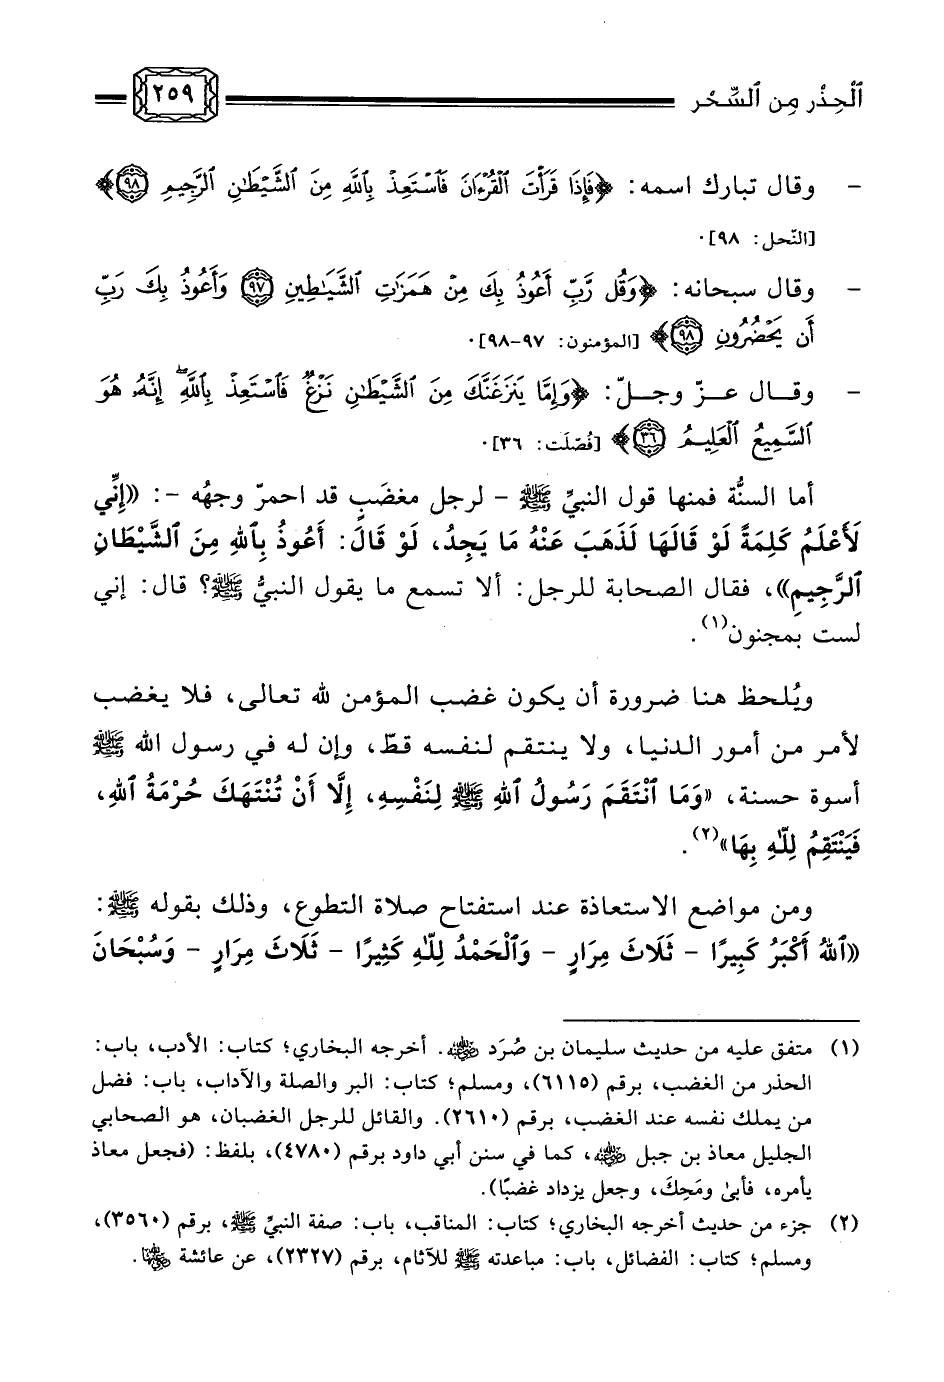 ٱلْحِذْر مِن ٱلسِّحْر ٢٥٩
- وقال تبارك اسمه: ﴿فَإِذَا قَرَأْتَ ٱلْقُرْءَانَ فَٱسْتَعِذْ بِٱللَّهِ مِنَ ٱلشَّيْطَٰنِ ٱلرَّجِيمِ ٩٨﴾
[النّحل: ٩٨].
- وقال سبحانه: ﴿وَقُل رَّبِّ أَعُوذُ بِكَ مِنْ هَمَزَٰتِ ٱلشَّيَٰطِينِ ٩٧ وَأَعُوذُ بِكَ رَبِّ
أَن يَحْضُرُونِ ٩٨﴾ [المؤمنون: ٩٧-٩٨].
- وقال عزّ وجلّ: ﴿وَإِمَّا يَنزَغَنَّكَ مِنَ ٱلشَّيْطَٰنِ نَزْغٌ فَٱسْتَعِذْ بِٱللَّهِۖ إِنَّهُۥ هُوَ
ٱلسَّمِيعُ ٱلْعَلِيمُ ٣٦﴾ [فُصّلَت: ٣٦].
أما السنُّة فمنها قول النبيِّ ﷺ - لرجل مغضَبٍ قد احمرّ وجهُه -: «إِنِّي
لَأَعْلَمُ كَلِمَةً لَوْ قَالَهَا لَذَهَبَ عَنْهُ مَا يَجِدُ، لَوْ قَالَ: أَعُوذُ بِٱللهِ مِنَ ٱلشَّيْطَانِ
ٱلرَّجِيمِ»، فقال الصحابة للرجل: ألا تسمع ما يقول النبيُّ ﷺ؟ قال: إني
لست بمجنون(١).
ويُلحظ هنا ضرورة أن يكون غضب المؤمن لله تعالى، فلا يغضب
لأمر من أمور الدنيا، ولا ينتقم لنفسه قطّ، وإن له في رسول الله ﷺ
أسوة حسنة، «وَمَا ٱنْتَقَمَ رَسُولُ ٱللهِ ﷺ لِنَفْسِهِ، إِلَّا أَنْ تُنْتَهَكَ حُرْمَةُ ٱللهِ،
فَيَنْتَقِمُ لِلّٰهِ بِهَا»(٢).
ومن مواضع الاستعاذة عند استفتاح صلاة التطوع، وذلك بقوله ﷺ:
«ٱللهُ أَكْبَرُ كَبِيرًا - ثَلَاثَ مِرَارٍ - وَٱلْحَمْدُ لِلّٰهِ كَثِيرًا - ثَلَاثَ مِرَارٍ - وَسُبْحَانَ
(١) متفق عليه من حديث سليمان بن صُرَد رضي الله عنه. أخرجه البخاري؛ كتاب: الأدب، باب:
الحذر من الغضب، برقم (٦١١٥)، ومسلم؛ كتاب: البر والصلة والآداب، باب: فضل
من يملك نفسه عند الغضب، برقم (٢٦١٠). والقائل للرجل الغضبان، هو الصحابي
الجليل معاذ بن جبل رضي الله عنه، كما في سنن أبي داود برقم (٤٧٨٠)، بلفظ: (فجعل معاذ
يأمره، فأبىٰ ومَحِكَ، وجعل يزداد غضبًا).
(٢) جزء من حديث أخرجه البخاري؛ كتاب: المناقب، باب: صفة النبيِّ ﷺ، برقم (٣٥٦٠)،
ومسلم؛ كتاب: الفضائل، باب: مباعدته ﷺ للآثام، برقم (٢٣٢٧)، عن عائشة رضي الله عنها.